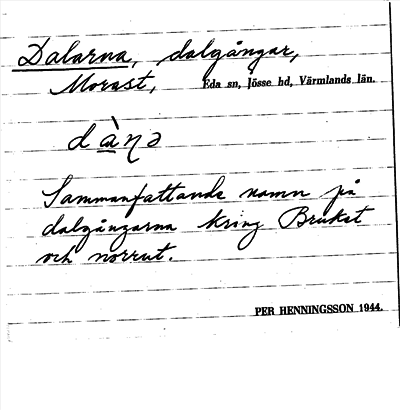 Dalarna, dalgångar,
Morast, Eda sn, Jösse hd, Värmlands län.
dàꞃə
Sammanfattande namn på
dalgångarna kring Bruket
och norrut.
PER HENNINGSSON 1944.